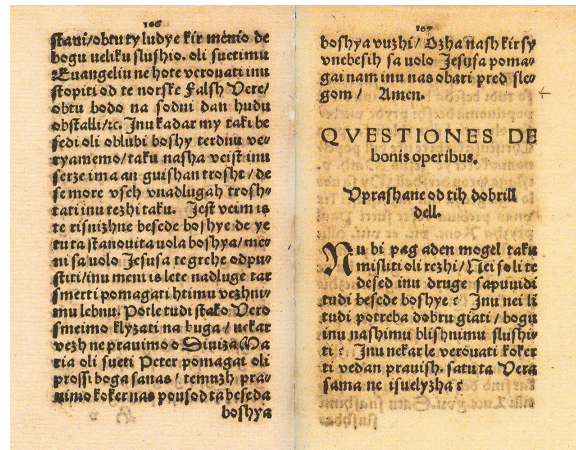 106
ſtaui/obtu ty ludye kir menio de
bogu ueliku ſlushio. oli ſuetimu
Euangeliu ne hote verouati inu
ſtopiti od te norske Falſh Vere/
obtu bodo na ſodni dan hudu
obſtalli/ꝛc. Inu kadar my taki be
ſedi oli oblubi boſhy terdnu ve-
ryamemo/taku naſha veiſt inu
ſerze ima an guiſhan troſht/ de
ſe more vſeh vnadlugah troſh-
tati inu rezhi taku. Jeſt veim is
te riſnizhne beſede boshye de ye
tu ta ſtanouita uola boſhya/me-
ni ſa uolo Jeſuſa te grehe odpu-
ſtiti/inu meni is lete nadluge tar
ſmerti pomagati htimu vezhni-
mu lebnu. Potle tudi ſtako Vero
ſmeimo klyzati na buga/ nekar
vezh ne prauimo o Diuiza Ma
ria oli ſueti Peter pomagai oli
proſſi boga ſa nas/ temuzh pra-
uimo koker nas pouſod ta beſeda
boſhya
107
boſhya vuzhi/ Ozha naſh kir ſy
vnebeſih ſa uolo Jeſuſa poma-
gai nam inu nas obari pred ſle-
gom/ Amen.
QVESTIONES DE
bonis operibus.
Vpraſhane od tih dobrill
dell.
Nu bi pag aden mogel taku
miſliti oli rezhi/ Nei ſo li te
deſed inu druge ſapuuidi
tudi beſede boſhye? Inu nei li
tudi potreba dobru giati/ bogu
inu naſhimu bliſhnimu ſluſhi-
ti? Inu nekar le verouati koker
ti vedan prauiſh. ſa tu ta Vera
ſama ne iſuelyzha?